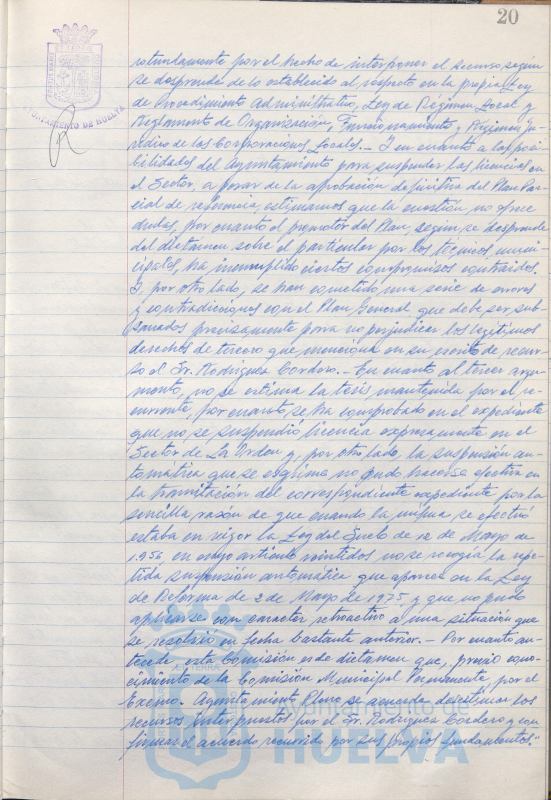 20
AYUNTAMIENTO DE HUELVA
rotundamente por el hecho de interponer el recurso, según
se desprende de lo establecido al respecto en la propia Ley
de Procedimiento Administrativo, Ley de Régimen Local y
Reglamento de Organización, Funcionamiento y Régimen Ju-
rídico de las Corporaciones Locales.- Y en cuanto a las posi-
bilidades del Ayuntamiento para suspender las licencias en
el Sector, a pesar de la aprobación definitiva del Plan Par-
cial de referencia, estimamos que la cuestión no ofrece
dudas, por cuanto el promotor del Plan, según se desprende
del dictamen sobre el particular por los técnicos muni-
cipales, ha incumplido ciertos compromisos contraídos.
Y por otro lado, se han cometido una serie de errores
y contradicciones con el Plan General, que debe ser sub-
sanados precisamente para no perjudicar los legítimos
derechos de tercero que menciona en su escrito de recur-
so el Sr. Rodríguez Cordero.- En cuanto al tercer argu-
mento, no se estima la tesis mantenida por el re-
currente, por cuanto se ha comprobado en el expediente
que no se suspendió licencia expresamente en el
Sector de La Orden y, por otro lado, la suspensión au-
tomática que se esgrime no pudo hacerse efectiva en
la tramitación del correspondiente expediente por la
sencilla razón de que cuando la misma se efectuó
estaba en vigor la Ley del Suelo de 12 de Mayo de
1.956 en cuyo artículo veintidos no se recogía la repe-
tida suspensión automática que aparece en la Ley
de Reforma de 2 de Mayo de 1975, y que no pudo
aplicarse con caracter retroactivo a una situación que
se resolvió en fecha bastante anterior.- Por cuanto an-
tecede, esta Comisión es de dictamen que, previo cono-
cimiento de la Comisión Municipal Permanente, por el
Excmo. Ayuntamiento Pleno se acuerde desestimar los
recursos interpuestos por el Sr. Rodríguez Cordero y con-
firmar el acuerdo recurrido por sus propios fundamentos."
Ayuntamiento de
HUELVA